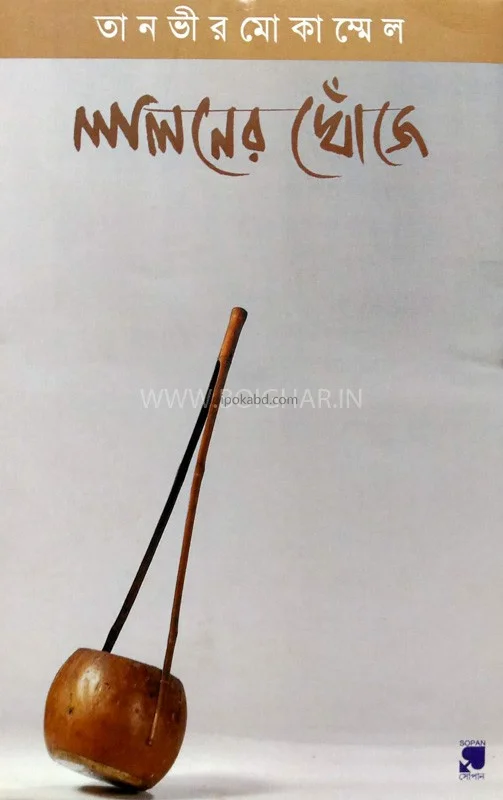 তানভীর মোকাম্মেল
লালনের খোঁজে
WWW.BOIGHAR.IN
ipokabd.com
SOPAN
সোপান